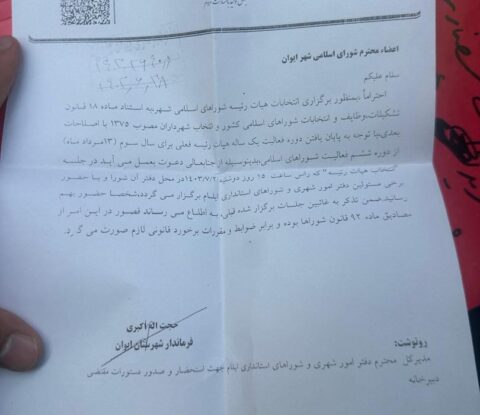 اعضاء محترم شورای اسلامی شهر ایوان
سلام علیکم
احتراماً، بمنظور برگزاری انتخابات هیات رئیسه شوراهای اسلامی شهر، به استناد ماده ۱۸ قانون
تشکیلات، وظایف و انتخابات شوراهای اسلامی کشور و انتخاب شهرداران مصوب ۱۳۷۵ با اصلاحات
بعدی، با توجه به پایان یافتن دوره فعالیت یک ساله هیات رئیسه فعلی برای سال سوم (۱۳مرداد ماه)
از دوره ششم فعالیت شوراهای اسلامی، بدینوسیله از جنابعالی دعوت بعمل می آید در جلسه
"انتخاب هیات رئیسه" که راس ساعت ۱۵ روز دوشنبه ۱۴۰۳/۷/۲ در محل دفتر آن شورا و با حضور
برخی مسئولین دفتر امور شهری و شوراهای استانداری ایلام برگزار می گردد، شخصا حضور بهم
رسانید. ضمن تذکر به غائبین جلسات برگزار شده قبلی، به اطلاع می رساند قصور در این امر از
مصادیق ماده ۹۲ قانون شوراها بوده و برابر ضوابط و مقررات برخورد قانونی لازم صورت می گیرد.
حجت اله اکبری
فرماندار شهرستان ایوان
رونوشت:
مدیرکل محترم دفتر امور شهری و شوراهای استانداری ایلام جهت استحضار و صدور دستورات مقتضی
دبیرخانه